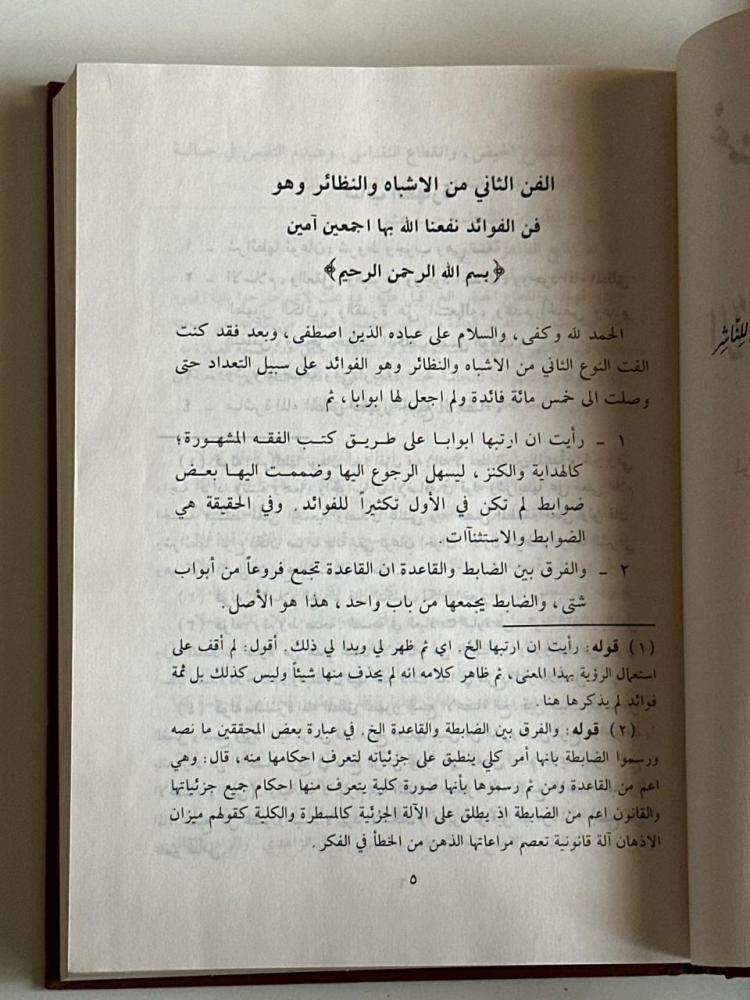 الفن الثاني من الاشباه والنظائر وهو
فن الفوائد نفعنا الله بها اجمعين آمين
﴿بسم الله الرحمن الرحيم﴾
الحمد لله وكفى، والسلام على عباده الذين اصطفى، وبعد فقد كنت
الفت النوع الثاني من الاشباه والنظائر وهو الفوائد على سبيل التعداد حتى
وصلت الى خمس مائة فائدة ولم اجعل لها ابوابا، ثم
١ - رأيت ان ارتبها ابوابا على طريق كتب الفقه المشهورة؛
كالهداية والكنز، ليسهل الرجوع اليها وضممت اليها بعض
ضوابط لم تكن في الأول تكثيراً للفوائد. وفي الحقيقة هي
الضوابط والاستثنآات.
٢ - والفرق بين الضابط والقاعدة ان القاعدة تجمع فروعاً من أبواب
شتى، والضابط يجمعها من باب واحد، هذا هو الأصل.
(١) قوله: رأيت ان ارتبها الخ. اي ثم ظهر لي وبدا لي ذلك. أقول: لم أقف على
استعمال الرؤية بهذا المعنى، ثم ظاهر كلامه انه لم يحذف منها شيئاً وليس كذلك بل ثمة
فوائد لم يذكرها هنا.
(٢) قوله: والفرق بين الضابطة والقاعدة الخ. في عبارة بعض المحققين ما نصه
ورسموا الضابطة بانها أمر كلي ينطبق على جزئياته لتعرف احكامها منه، قال: وهي
اعم من القاعدة ومن ثم رسموها بأنها صورة كلية يتعرف منها احكام جميع جزئياتها
والقانون اعم من الضابطة اذ يطلق على الآلة الجزئية كالمسطرة والكلية كقولهم ميزان
الاذهان آلة قانونية تعصم مراعاتها الذهن من الخطأ في الفكر.
٥
للناشر